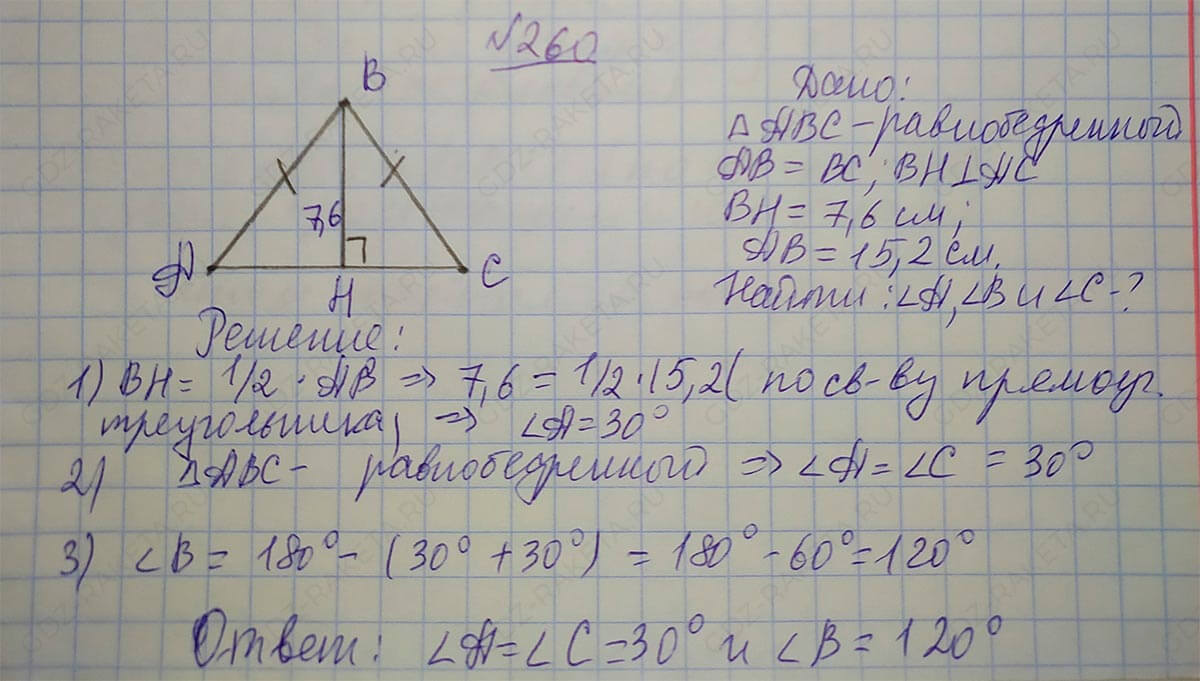 №260
B
7,6
A
H
C
Дано:
△ABC – равнобедренный
AB = BC; BH⊥AC
BH = 7,6 см;
AB = 15,2 см.
Найти: ∠A, ∠B и ∠C - ?
Решение:
1) BH = 1/2 · AB => 7,6 = 1/2 · 15,2 ( по св-ву прямоуг.
треугольника) => ∠A = 30°
2) △ABC – равнобедренный => ∠A = ∠C = 30°
3) ∠B = 180° - (30° + 30°) = 180° - 60° = 120°
Ответ: ∠A = ∠C = 30° и ∠B = 120°
GDZ-RAKETA.RU